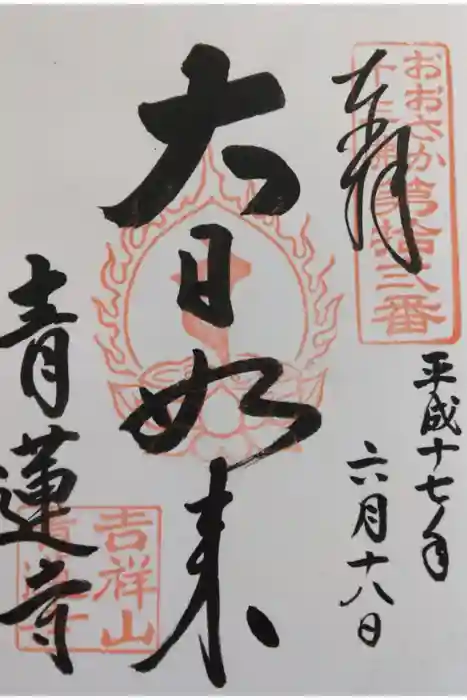 おおさか
十三佛第拾弐番
奉拝
平成十七年
六月十八日
大日如来
青蓮寺
吉祥山
青蓮寺